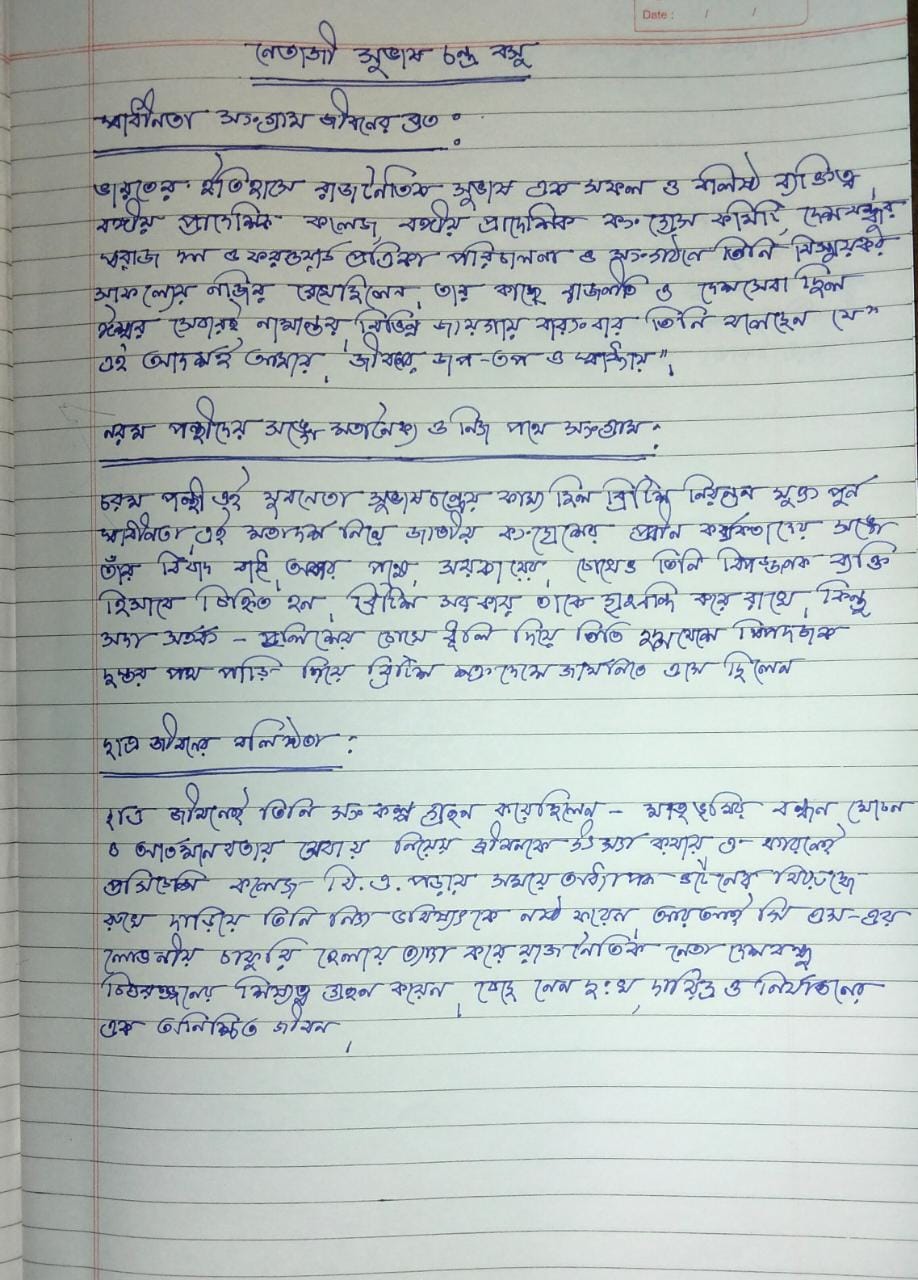 Date : / /
নেতাজী সুভাষ চন্দ্র বসু
স্বাধীনতা সংগ্রাম জীবনের ব্রত :
ভারতের ইতিহাসে রাজনৈতিক সুভাষ এক সফল ও বলিষ্ঠ ব্যক্তিত্ব,
বঙ্গীয় প্রাদেশিক কলেজ, বঙ্গীয় প্রাদেশিক কংগ্রেস কমিটি, দেশবন্ধুর
স্বরাজ দল ও ফরওয়ার্ড প্রতিকা পরিচালনা ও সংগঠনে তিনি বিস্ময়কর
সাফল্যের নজির রেখেছিলেন, তার কাছে রাজনীতি ও দেশসেবা ছিল
ঈশ্বর সেবারই নামান্তর, বিভিন্ন জায়গায় বারংবার তিনি বলেছেন যে "
এই আদর্শই আমার জীবনের জপ-তপ ও স্বাধ্যায়",
নরম পন্থীদের সঙ্গে মতানৈক্য ও নিজ পথে সংগ্রাম :
চরম পন্থী এই যুবনেতা সুভাষচন্দ্রের কাম্য ছিল ব্রিটিশ নিয়ন্ত্রন মুক্ত পূর্ন
স্বাধীনতা, এই মতাদর্শ নিয়ে জাতীয় কংগ্রেসের প্রধান কর্মকর্তাদের সঙ্গে
তাঁর বিবাদ বাধে, অপর পক্ষে, সরকারের চোখেও তিনি বিপজ্জনক ব্যক্তি
হিসাবে চিহ্নিত হন, ব্রিটিশ সরকার তাকে গৃহবন্দি করে রাখে, কিন্তু
সদা সতর্ক - পুলিশের চোখে ধুলি দিয়ে তিনি বিপদজনক
দুস্তর পথ পাড়ি দিয়ে ব্রিটিশ শত্রুদেশে জার্মানিতে এসে ছিলেন
ছাত্র জীবনের বলিষ্ঠতা :
ছাত্র জীবনেই তিনি সংকল্প গ্রহন করেছিলেন - মাতৃভূমির বন্ধন মোচন
ও আর্তমানবতার সেবায় নিজের জীবনকে উৎসর্গ করার এ কারনেই
প্রসিডেন্সি কলেজে বি.এ. পড়ার সময়ে অধ্যাপক ওটেনের বিরুদ্ধে
রুখে দাড়িয়ে তিনি নিজ ভবিষ্যৎকে নষ্ট করেন আর তাই সি এস-এর
লোভনীয় চাকুরি হেলায় ত্যাগ করে রাজনৈতিক নেতা দেশবন্ধু
চিত্তরঞ্জনের শিষ্যত্ব গ্রহন করেন, বেছে নেন দু:খ, দারিদ্র ও নির্যাতনের
এক অনিশ্চিত জীবন,